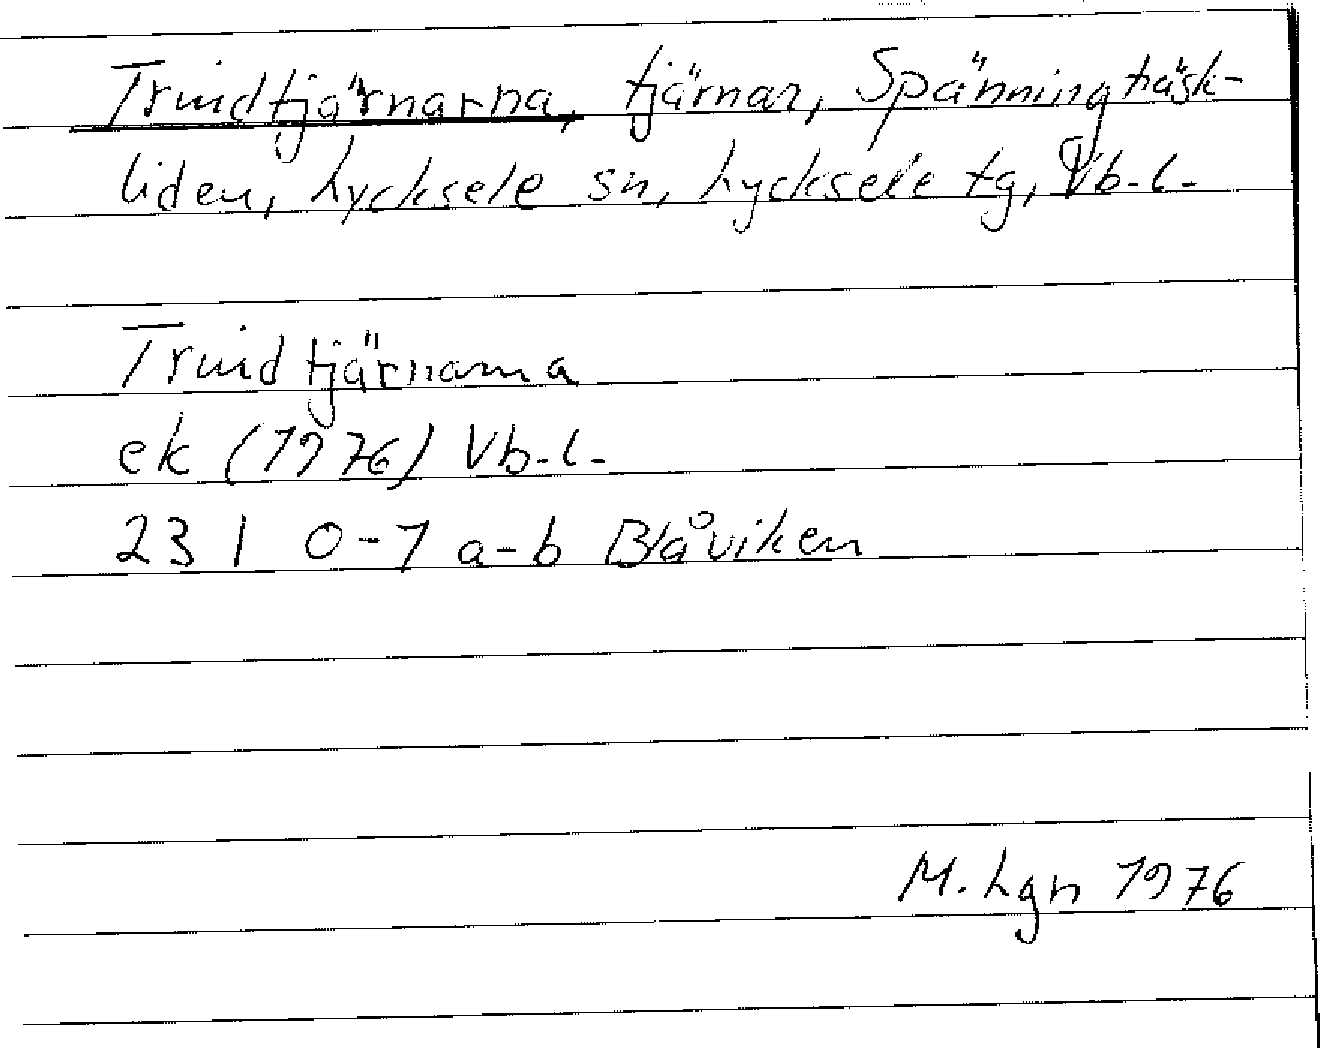 Trindtjärnarna, tjärnar, Spänningträsk-
liden, Lycksele sn, Lycksele tg, Vb.l.
Trindtjärnarna
ek (1976) Vb.l.
23 I 0-1 a-b Blåviken
M. Lgn 1976